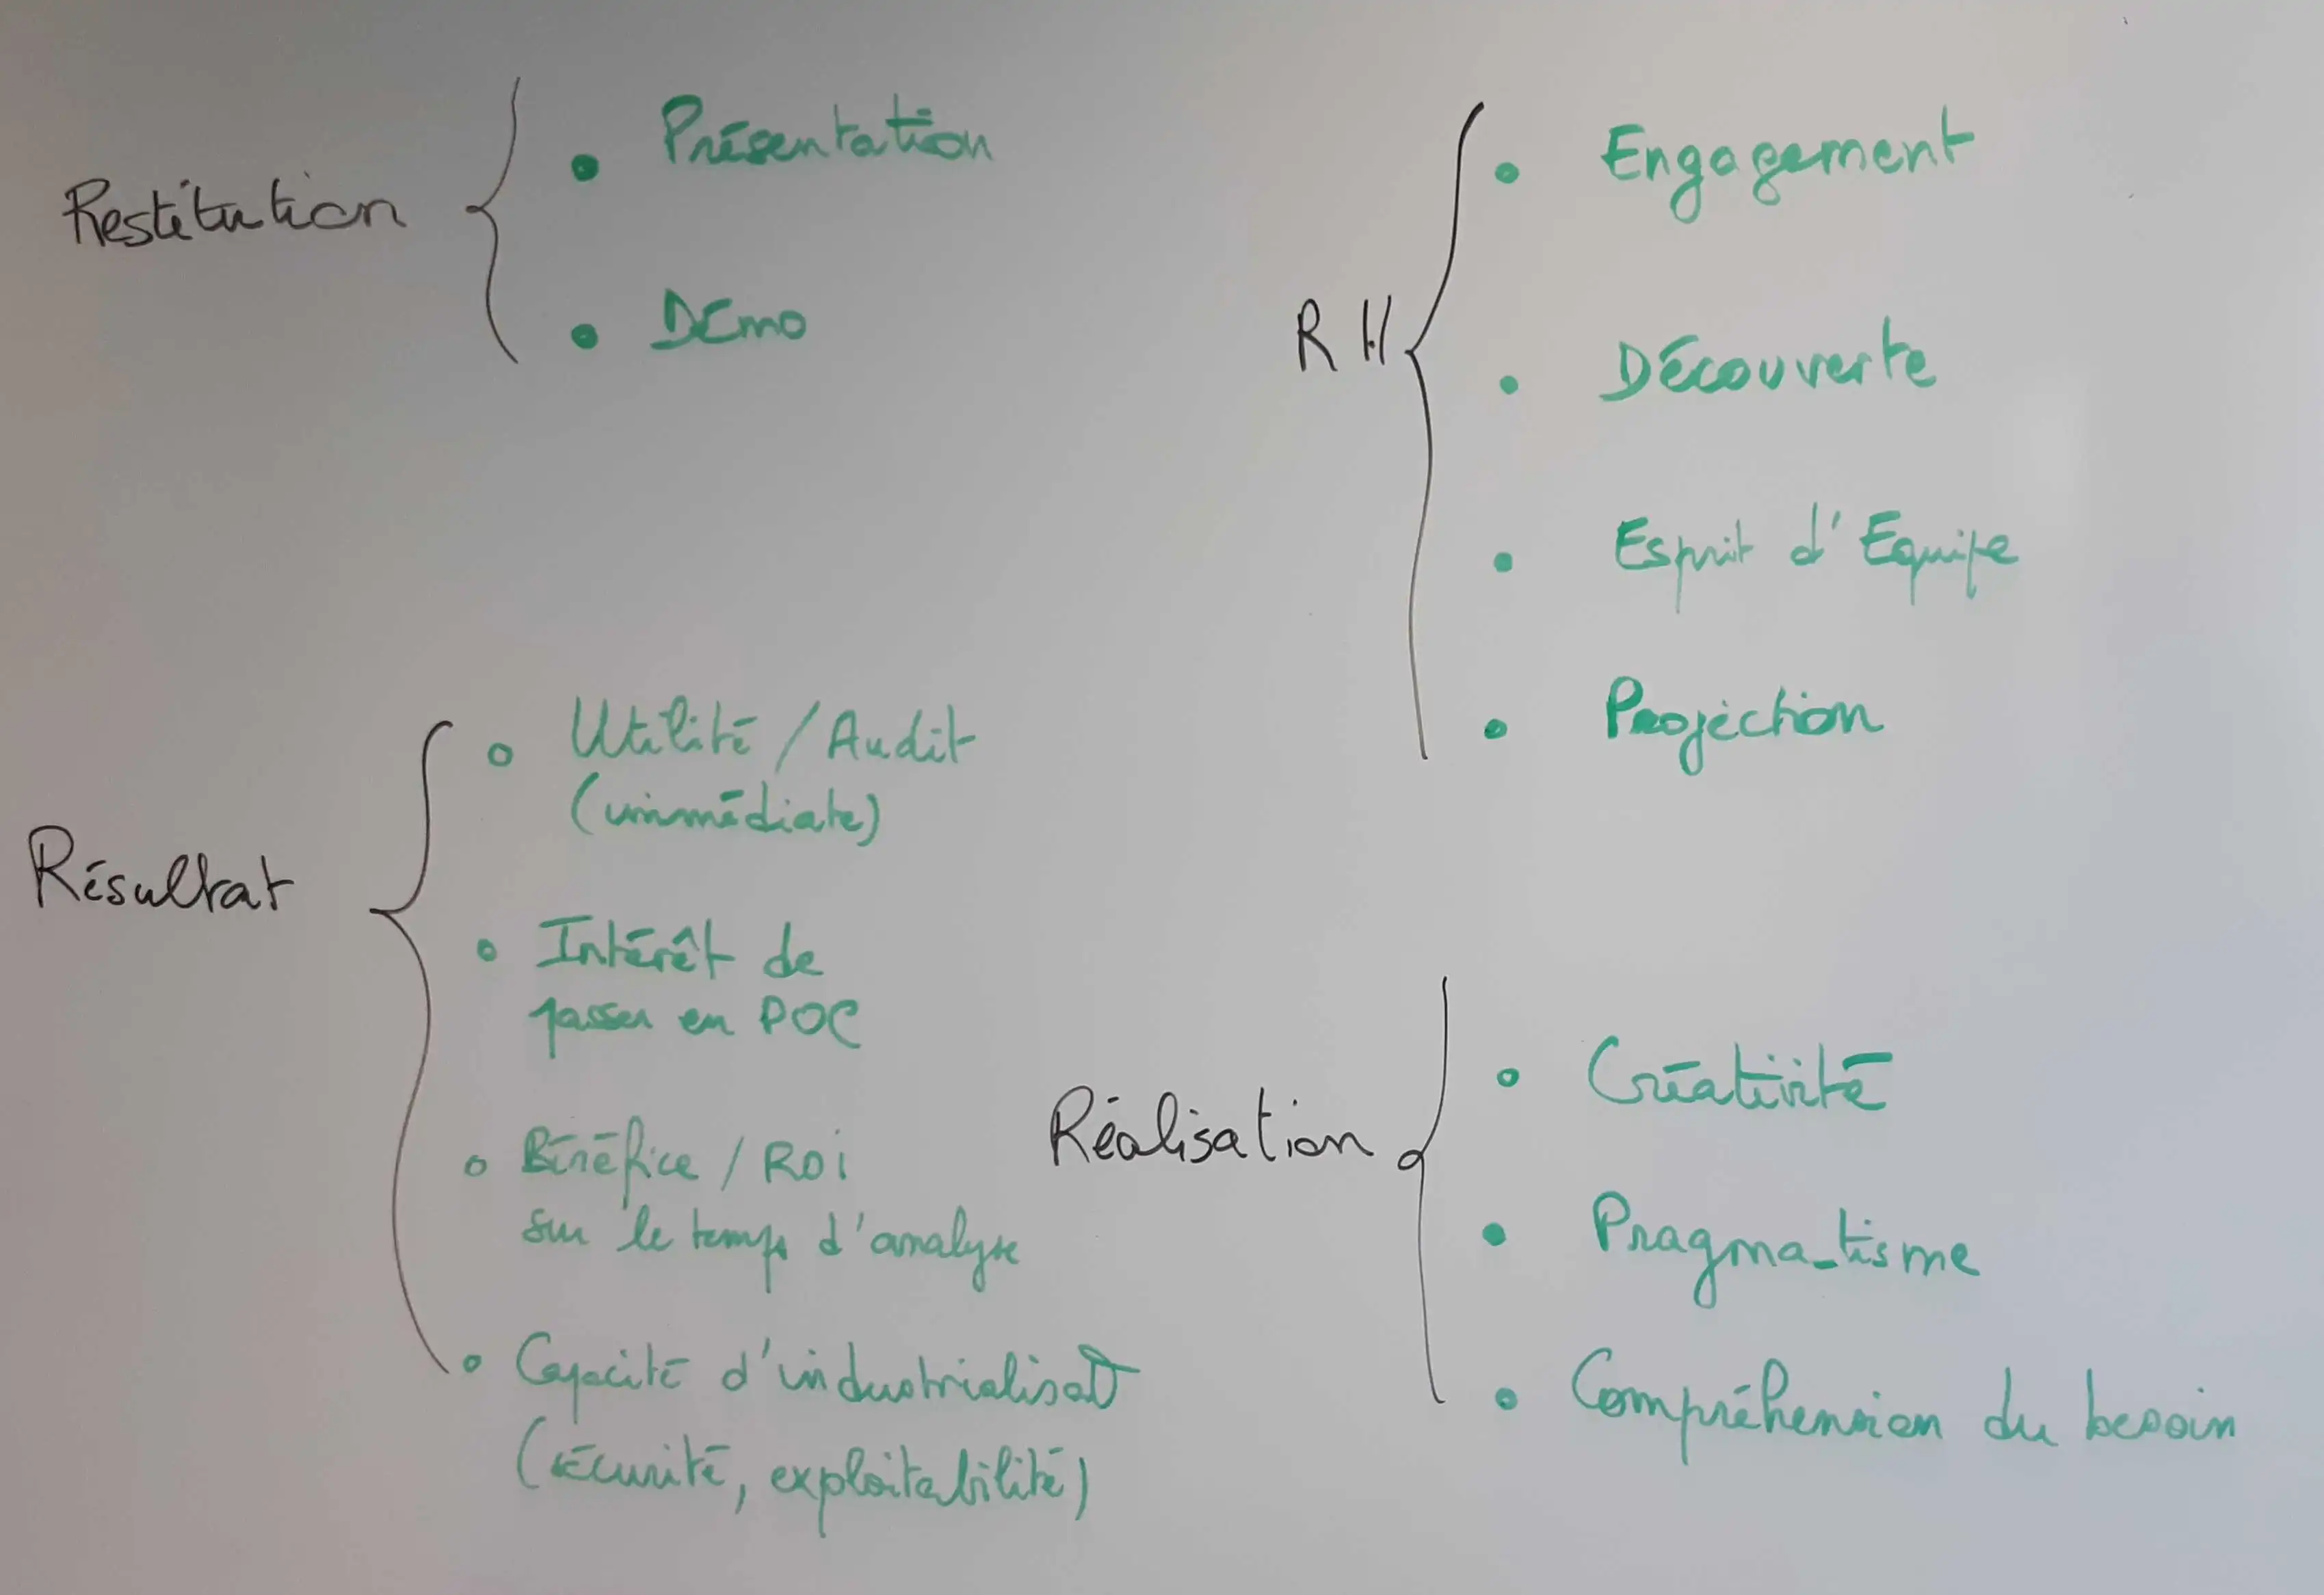 Restitution
• Présentation
• Démo
RH
• Engagement
• Découverte
• Esprit d'Equipe
• Projection
Résultat
• Utilité / Audit
(immédiate)
• Intérêt de
passer en POC
• Bénéfice / ROi
sur le temps d'analyse
• Capacité d'industrialisat°
(sécurité, exploitabilité)
Réalisation
• Créativité
• Pragma_tisme
• Compréhension du besoin